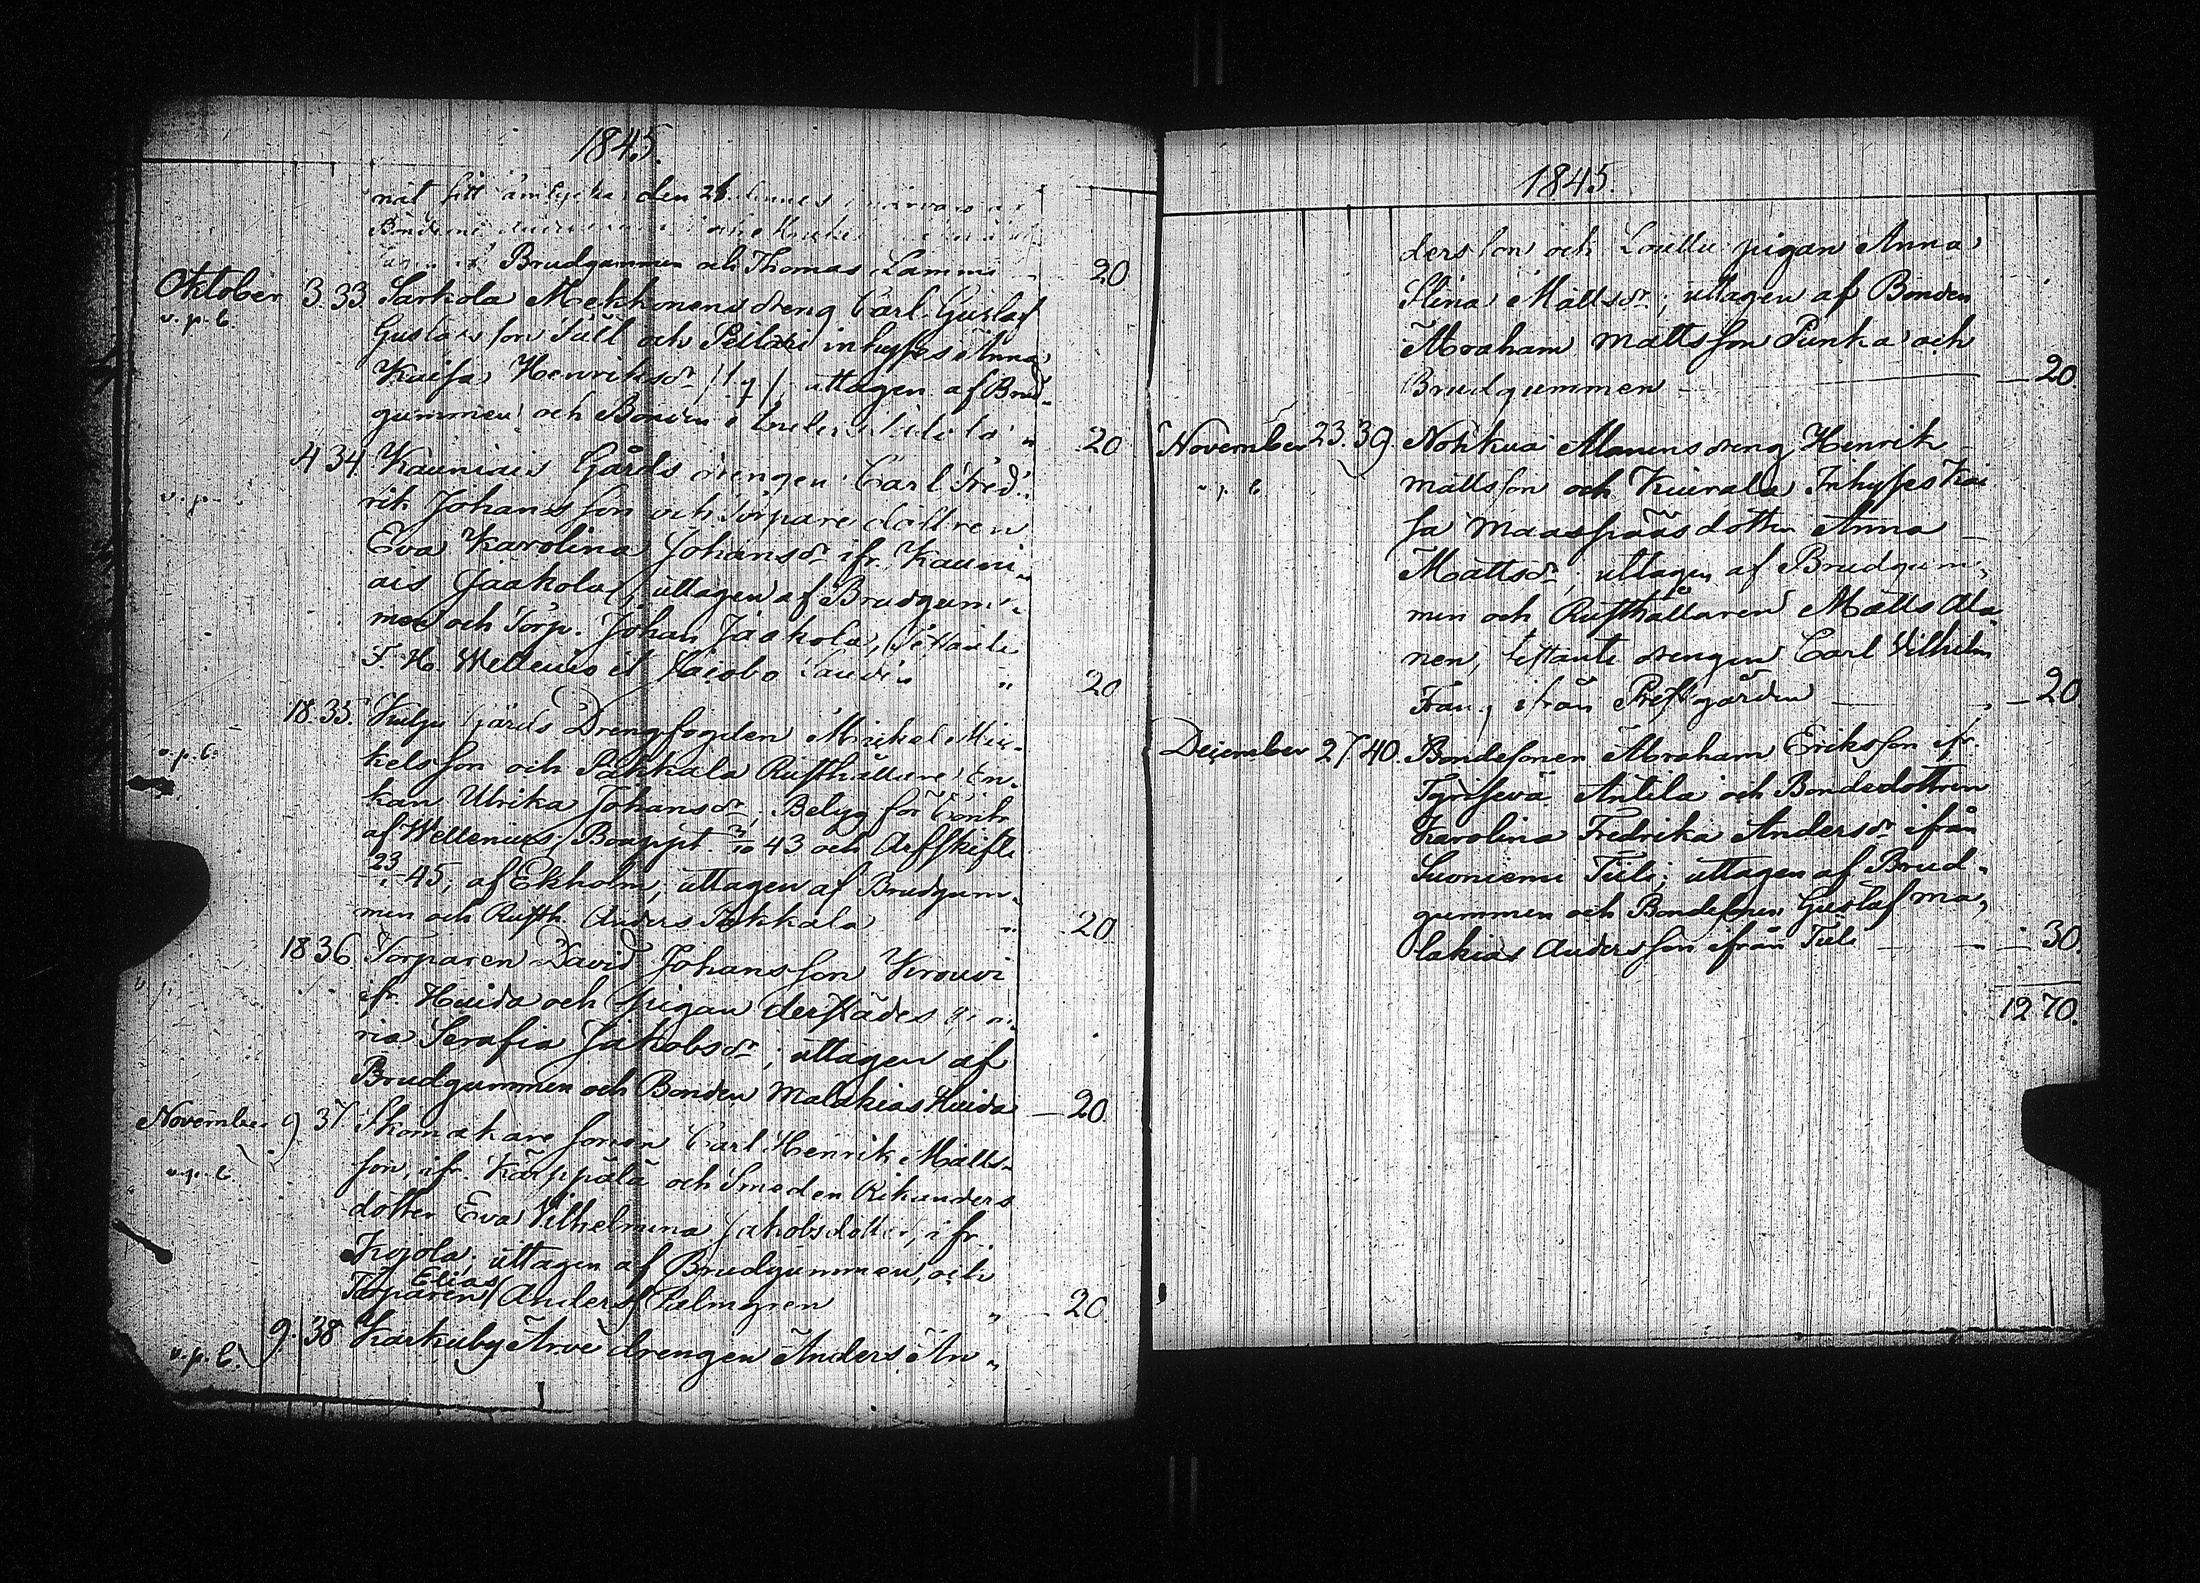 1845.
den 26
Brudgummen och Thomas Lammi 20
Oktober 3. 33. Sarkola Mekkonens dreng Carl Gustaf
v. p. b. Gustafsson Süll och Peilari inhyses Anna
Kaisa Henriksdr uttagen af Brud-
gummen och Bonden 20
4 34 Kauniais Gårds drengen Carl Fred-
v. p. rik Johansson och Torpare dottren
Eva Karolina Johansdr ifr. Kauni-
ais Jaakola, uttagen af Brudgum-
men och Torp. Johan Jaakola,
F. H. Wellenius et Jacobo 20
18. 35. Kulju Gårds Drengfogden Mickel Mic-
v. p. b. kelsson och Pakkala Rusthållare En-
kan Ulrika Johansdr; Belyg för
af Wellenius, Bouppt. 3/10 43 och Arfskifte
23 45, af Ekholm; uttagen af Brudgum-
men och Rusth. Anders Pakkala " 20
18 36 Torparen David Johansson Krouvi
ifr. Huida och pigan derstädes
ria Serafia Jakobsdr; uttagen af
Brudgummen och Bonden Malakias Huida — 20
November 9 37 Skomakare sonen Carl Henrik Matts-
v. p. b. son, ifr. Karppala och Smeden Rikanders
dotter Eva Vilhelmina Jakobsdotter, ifr.
uttagen af Brudgummen, och
Elias
Torparen Anders Palmgren " — 20
v. p. b. 9. 38 Karkuby Arve drengen Anders An-
1845.
ders son och pigan Anna
Stina Mattsdr; uttagen af Bonden
Abraham Mattsson Punka och
Brudgummen — 20.
November 23. 39. Nohkua Alanens dreng Henrik
v. p. b. Mattsson och Kuirala Inhyses Kai
sa dotter Anna
Mattsdr; uttagen af Brudgum-
men och Rusthållaren Matts Ala-
nen, testante drengen Carl Vilhelm
ifrån Prestgården — 20.
December 27 40. Bondesonen Abraham Eriksson ifr.
Tyrisevä Antila och Bondedottren
Karolina Fredrika Andersdr ifrån
Suoniemi Tuli; uttagen af Brud-
gummen och Bondesonen Gustaf Ma-
lakias Andersson ifrån Tuli — 30.
12 70.